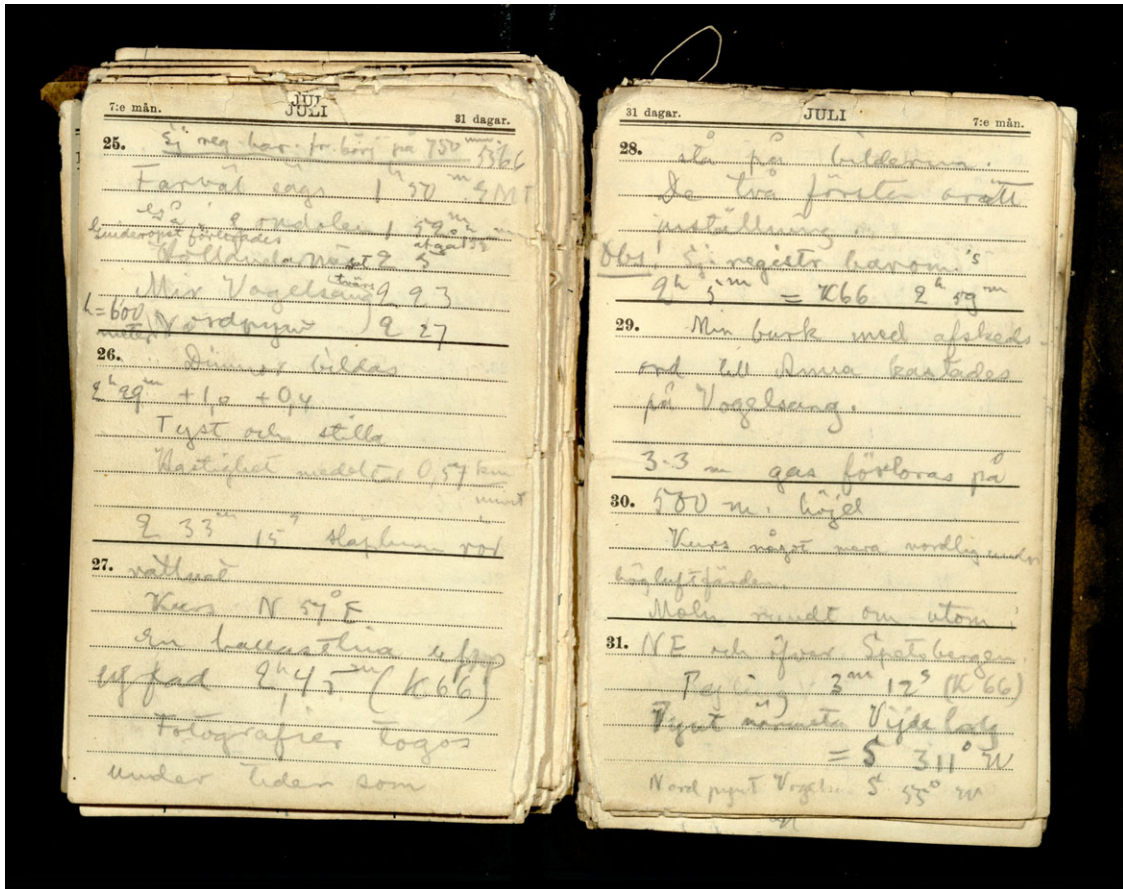 7:e mån. JULI 31 dagar.
25. Ej reg. bar. för börj på 750 mm K66
Farväl sägs 1h 50m GMT
1 52m
Guideropet förlorades
Holländarnäset 2 5
Mix Vogelsang (tvärs) 2 23
h=600 Nordpynt 2 27
meter
26. Dimmor bildas
2h 29m +1,0 +0,4
Tyst och stilla
Hastighet medelt. 0,57 km
minut
2 33m 15s släplinan
27.
Kurs N 57° E
En ballastlina
2h 45m (K66)
Fotografier togos
under tiden som
31 dagar. JULI 7:e mån.
28. stå på bilderna.
De två första orätt
inställning.
Obs! Ej registr barom.'s
2h 5m = K66 2h 59m
29. Min burk med afskeds-
ord till Anna kastades
på Vogelsang.
3.3 m gas förloras på
30. 500 m. höjd
Kurs något mera nordlig under
högluftfärden.
Moln rundt om utom i
31. NE och öfver Spetsbergen.
Pejling) 3m 12s (K 66)
Pynt närmsta
= S 311° W
Nord pynt Vogels. S 55° W